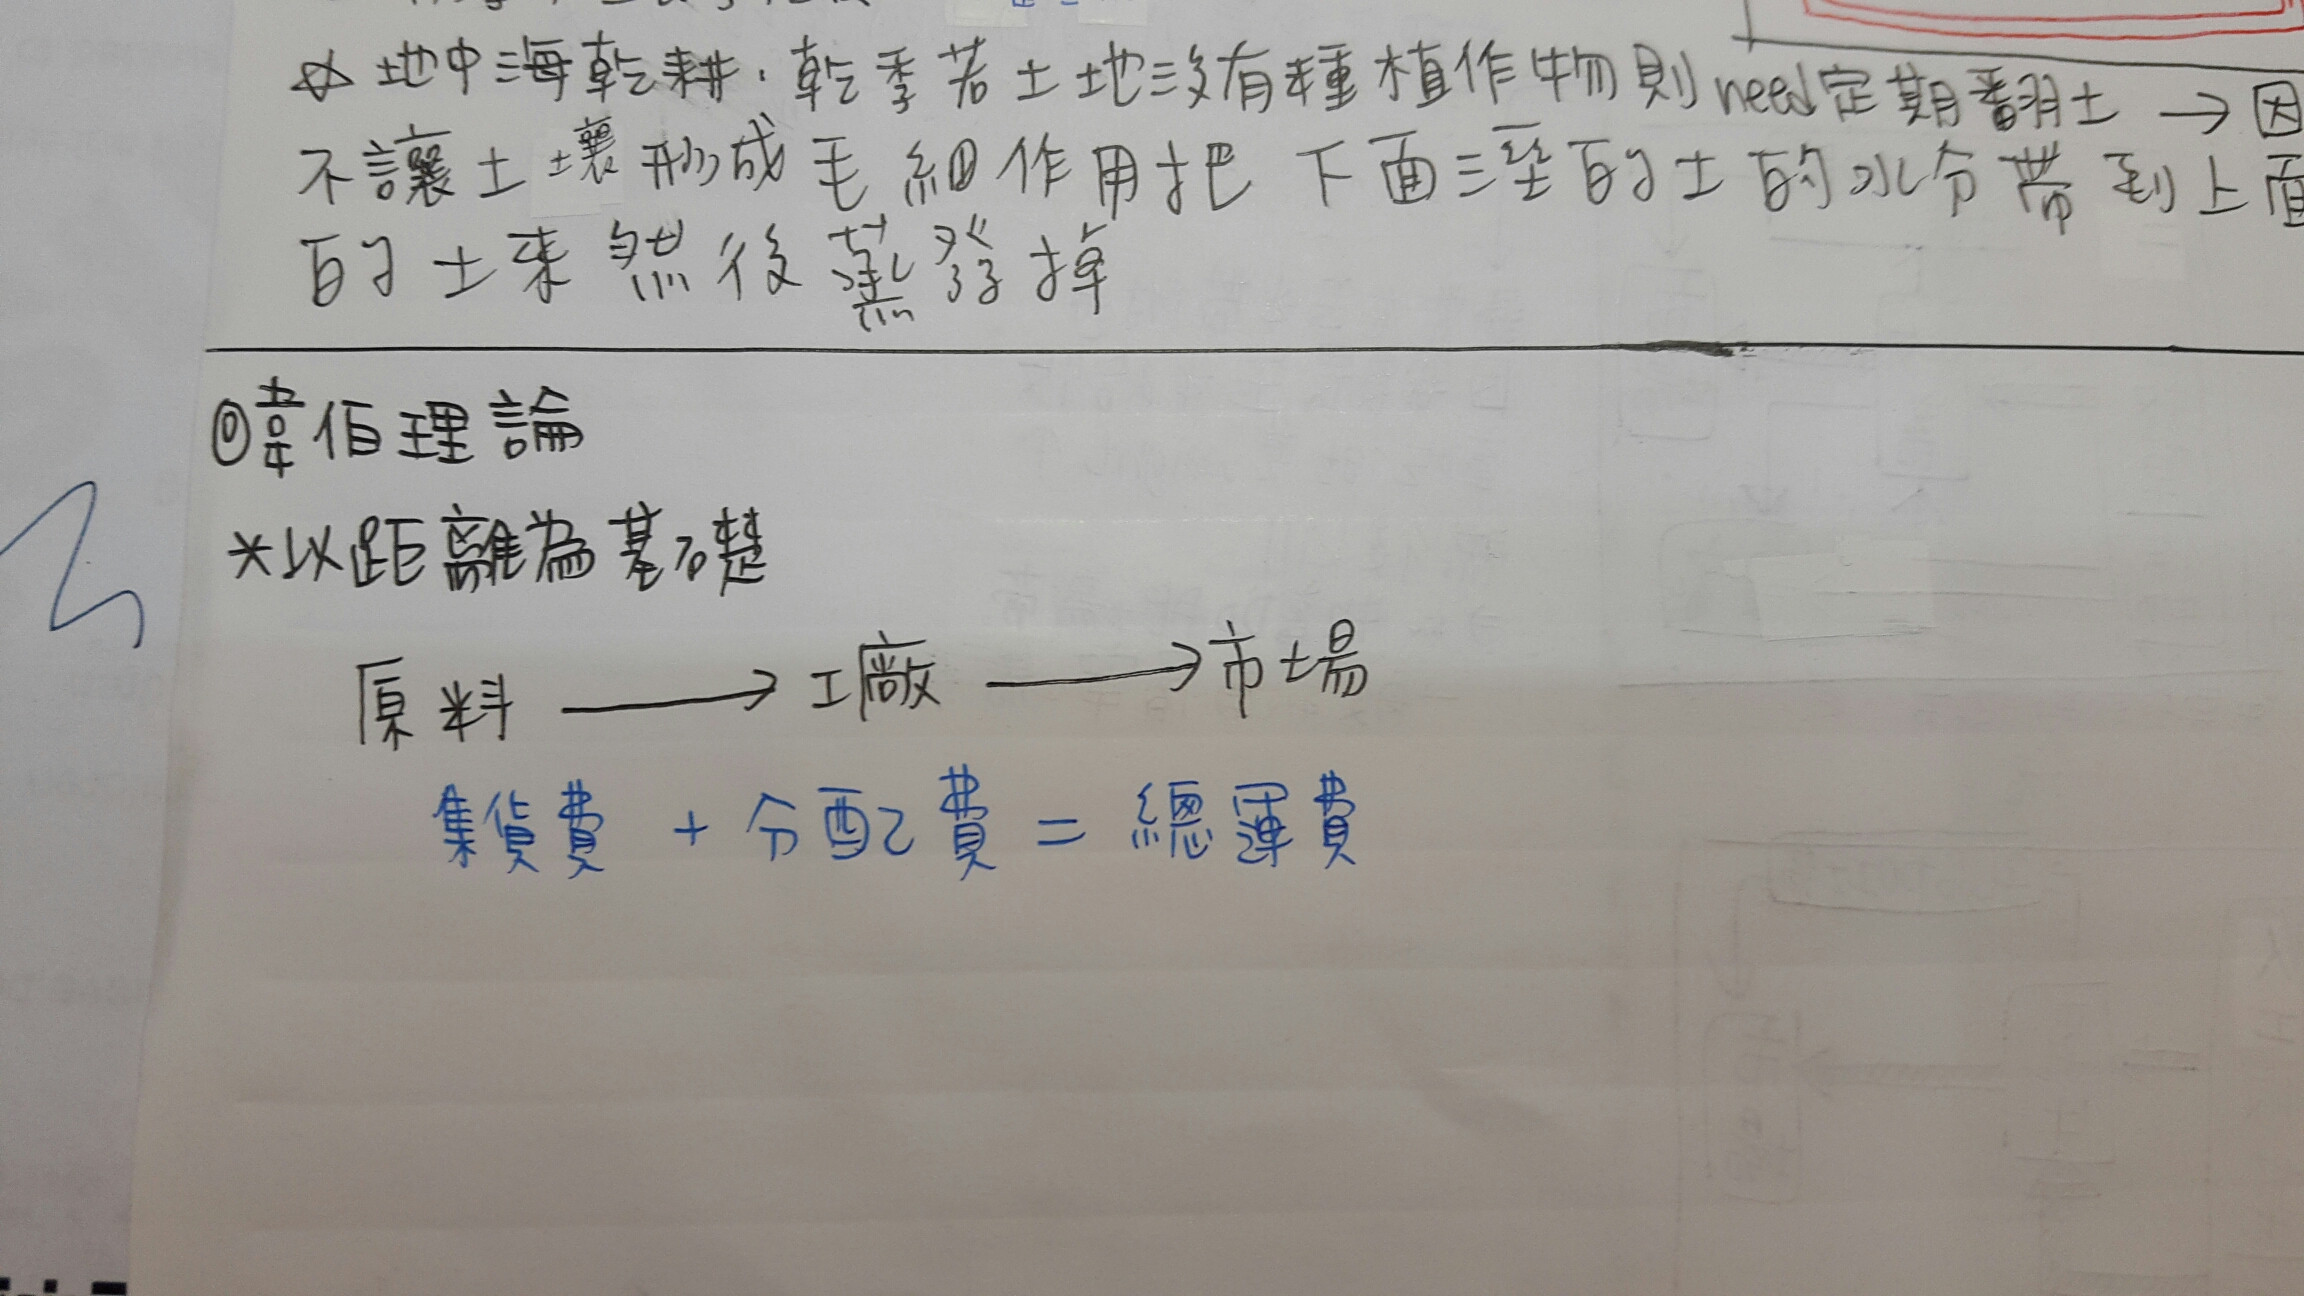 ☆地中海乾耕:乾季若土地沒有種植作物則need定期翻土→因
不讓土壤形成毛細作用把下面溼的土的水分帶到上面
的土來然後蒸發掉
◎韋伯理論
*以距離為基礎
原料→工廠→市場
集貨費+分配費=總運費